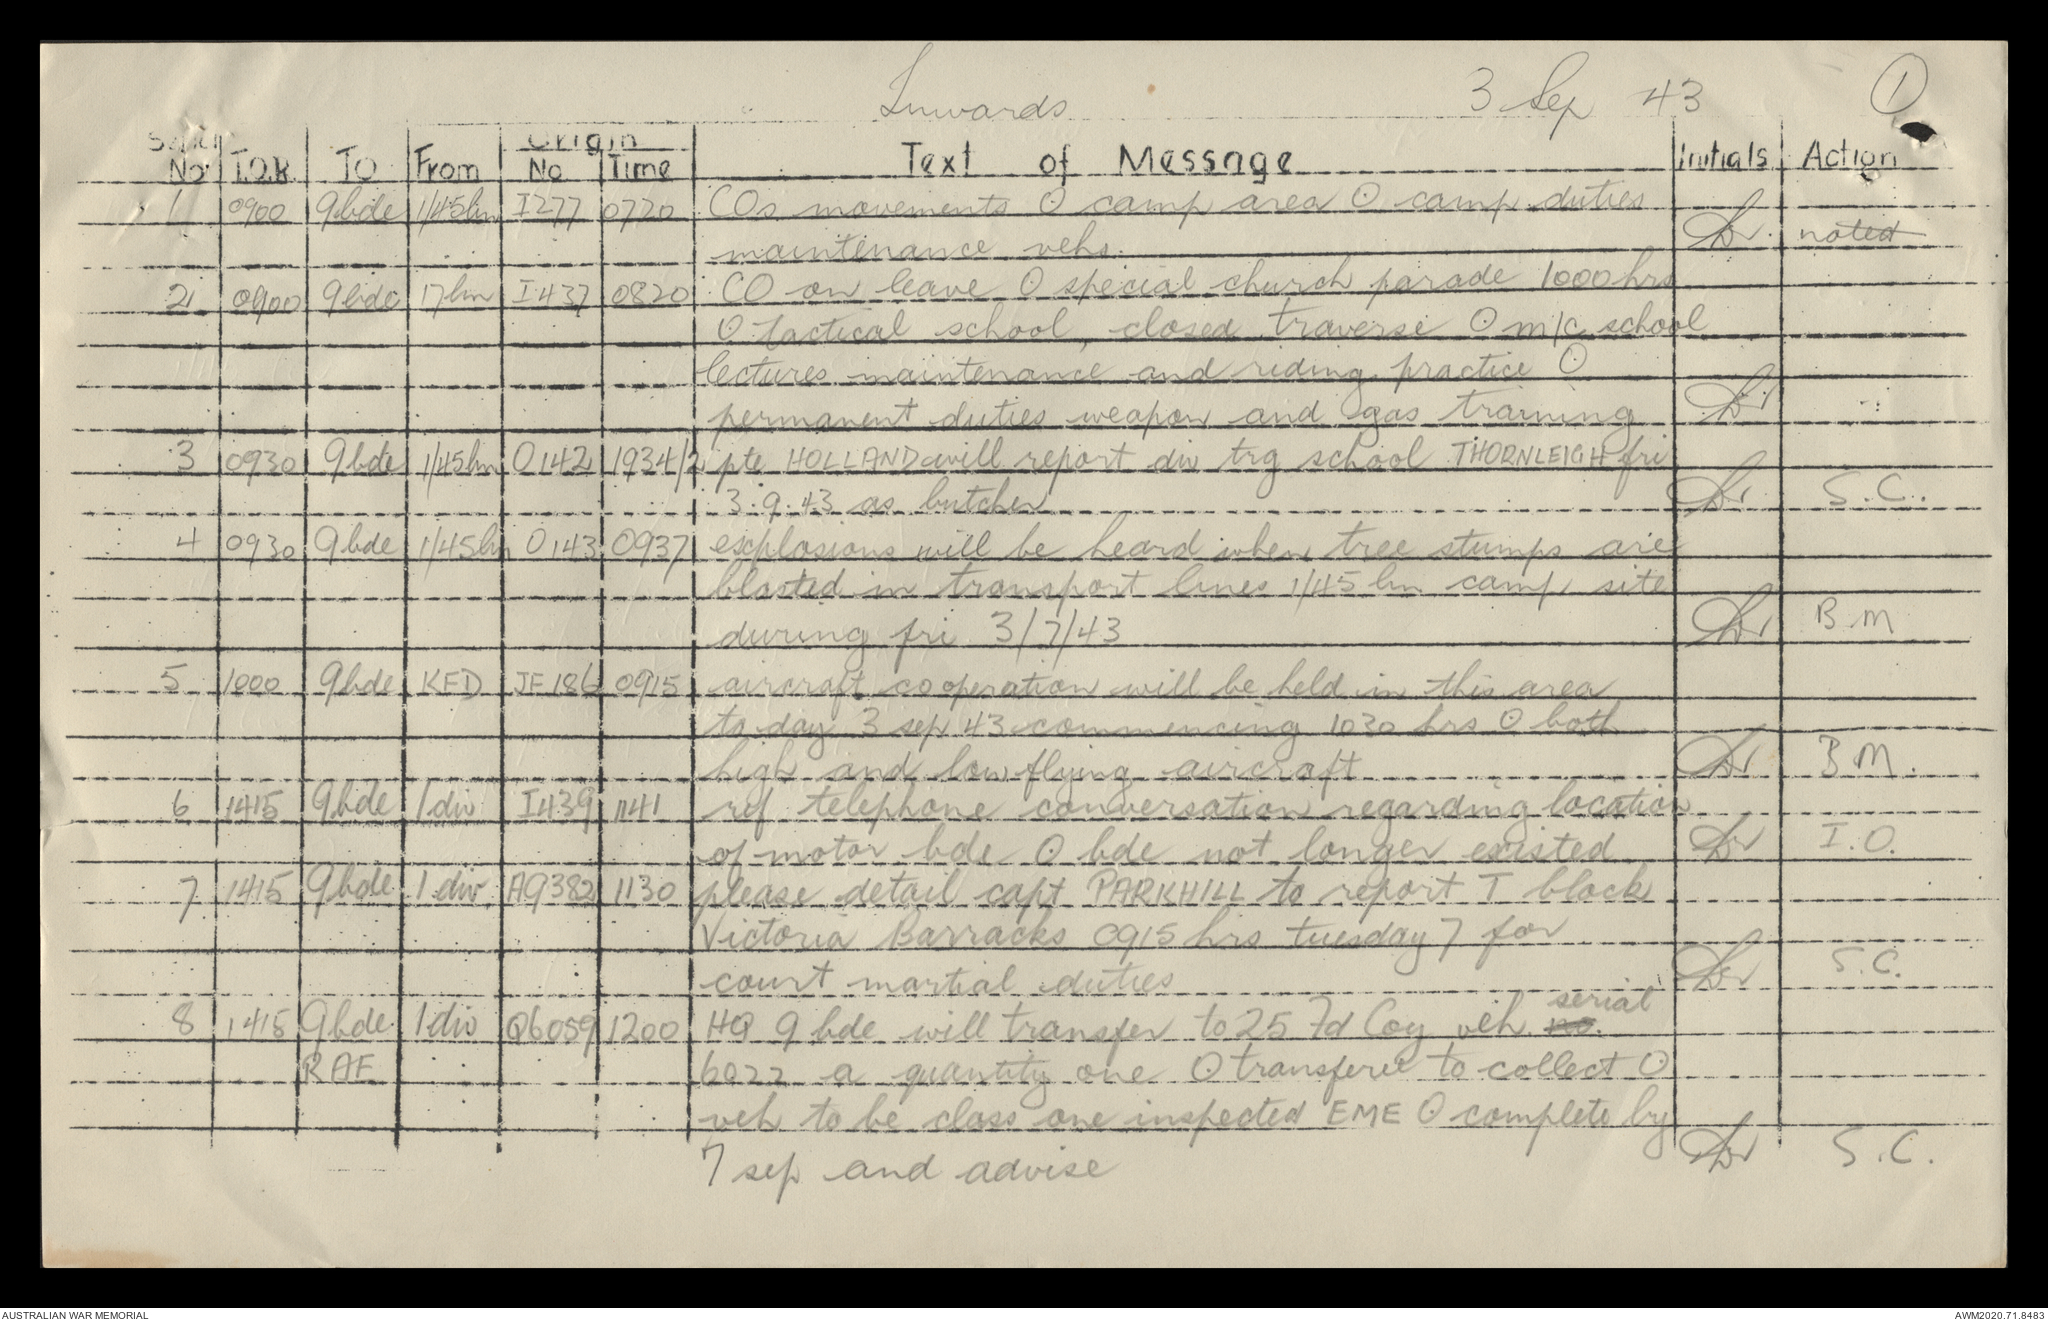 Inwards 3 Sep 43 1
Serial Origin
No. T.O.R. TO From No Time Text of Message Initials Action
1 0900 9 bde 1/45 bn I277 0720 COs movements ⊙ camp area ⊙ camp duties
maintenance vehs. noted
2 0900 9 bde 17 bn I437 0820 CO on leave ⊙ special church parade 1000 hrs
⊙ tactical school, closed traverse ⊙ m/c school
lectures maintenance and riding practice ⊙
permanent duties weapon and gas training
3 0930 9 bde 1/45 bn O142 1934/2 pte HOLLAND will report div trg school THORNLEIGH fri
3.9.43 as butcher S.C.
4 0930 9 bde 1/45 bn O143 0937 explosions will be heard when tree stumps are
blasted in transport lines 1/45 bn camp site
during fri 3/7/43 B M
5 1000 9 bde KFD JF186 0915 aircraft cooperation will be held in this area
to day 3 sep 43 commencing 1030 hrs ⊙ both
high and low flying aircraft B M.
6 1415 9 bde 1 div I439 1141 ref telephone conversation regarding location
of motor bde ⊙ bde not longer existed I.O.
7 1415 9 bde 1 div A9382 1130 please detail capt PARKHILL to report T block
Victoria Barracks 0915 hrs tuesday 7 for
court martial duties S.C.
8 1415 9 bde 1 div Q6059 1200 HQ 9 bde will transfer to 25 Fd Coy veh no. serial
RAE 6022 a quantity one ⊙ transferee to collect ⊙
veh to be class one inspected EME ⊙ complete by
7 sep and advise S.C.
AUSTRALIAN WAR MEMORIAL AWM2020.71.8483